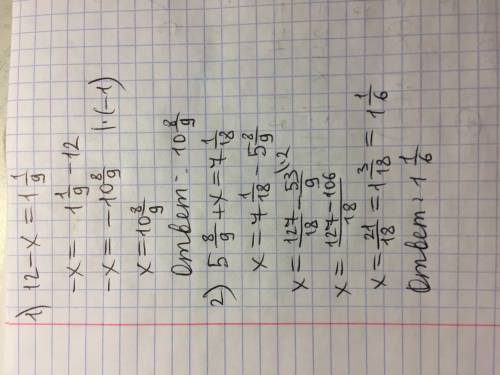 1) 12-x=1 1/9
-x= 1 1/9 -12
-x= -10 8/9 |·(-1)
x=10 8/9
Ответ: 10 8/9
2) 5 8/9 +x=7 1/18
x=7 1/18 - 5 8/9
x= 127/18 - 53/9 \·2
x= 127-106/18
x= 21/18 =1 3/18 = 1 1/6
Ответ: 1 1/6